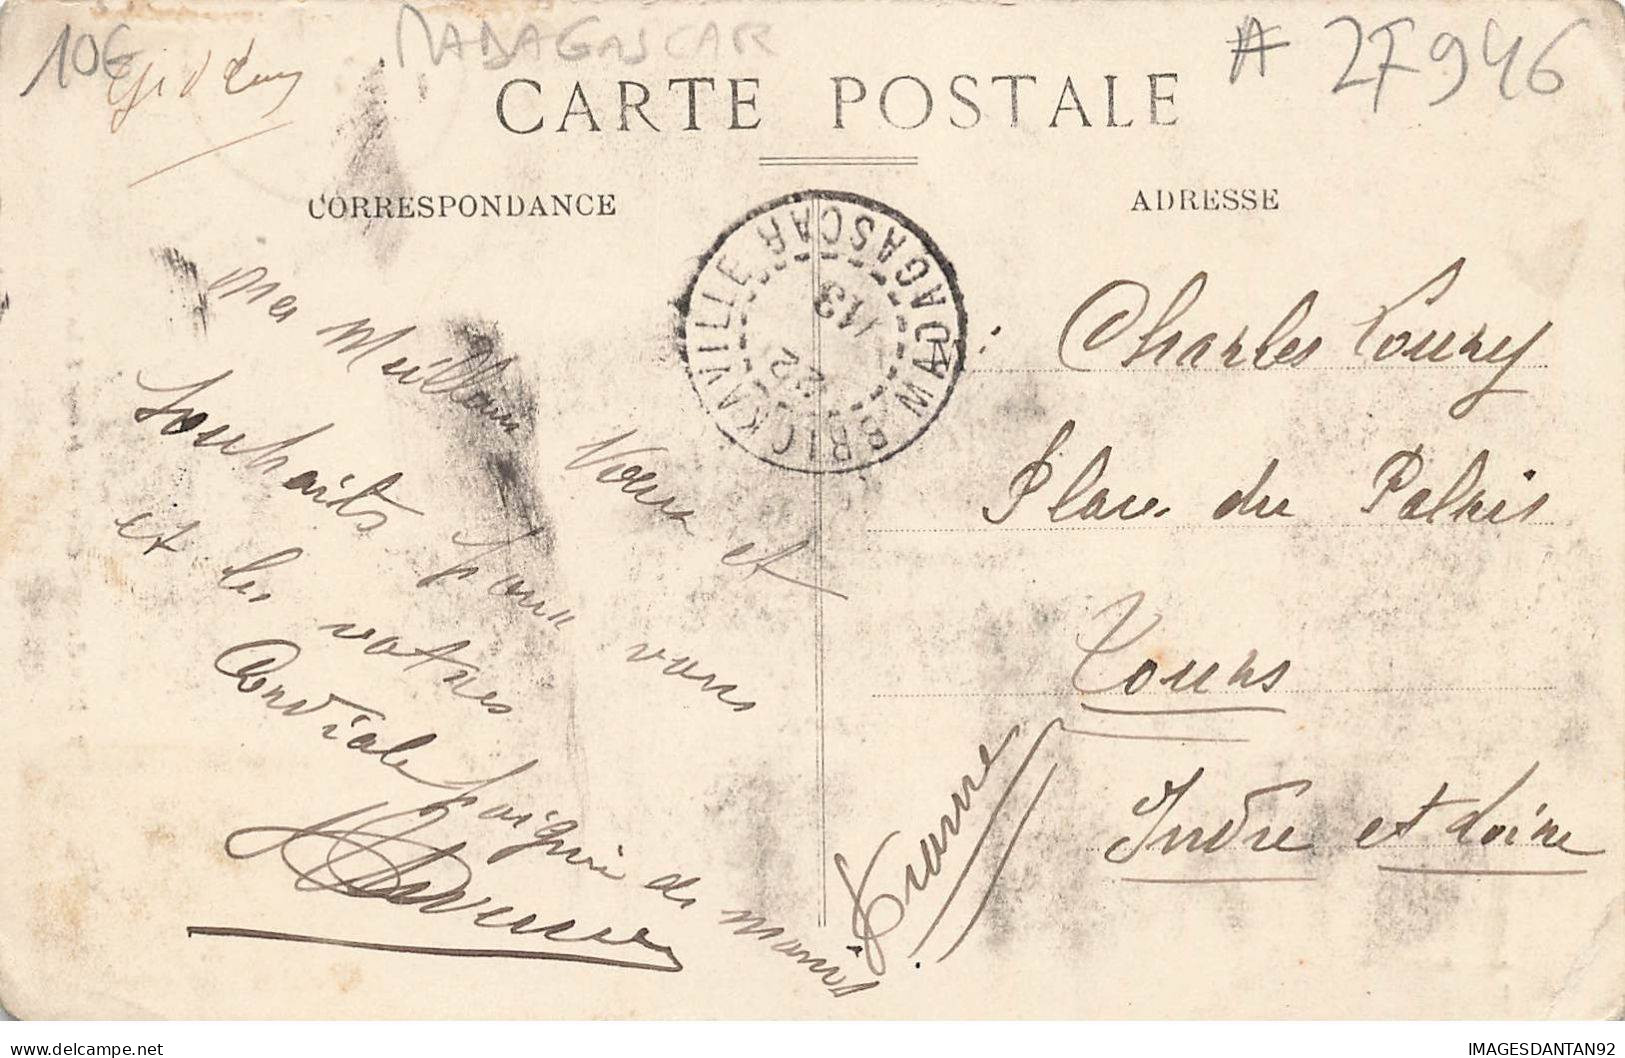 10€
MADAGASCAR
# 27946
CARTE POSTALE
CORRESPONDANCE
ADRESSE
BRICKAVILLE
MADAGASCAR
22
13
Mes Meilleurs Voeux et
Souhaits pour vous
et les votres
Cordiale poignée de mains
Charles Loury
Place du Palais
Tours
Indre et Loire
France
IMAGESDANTAN92